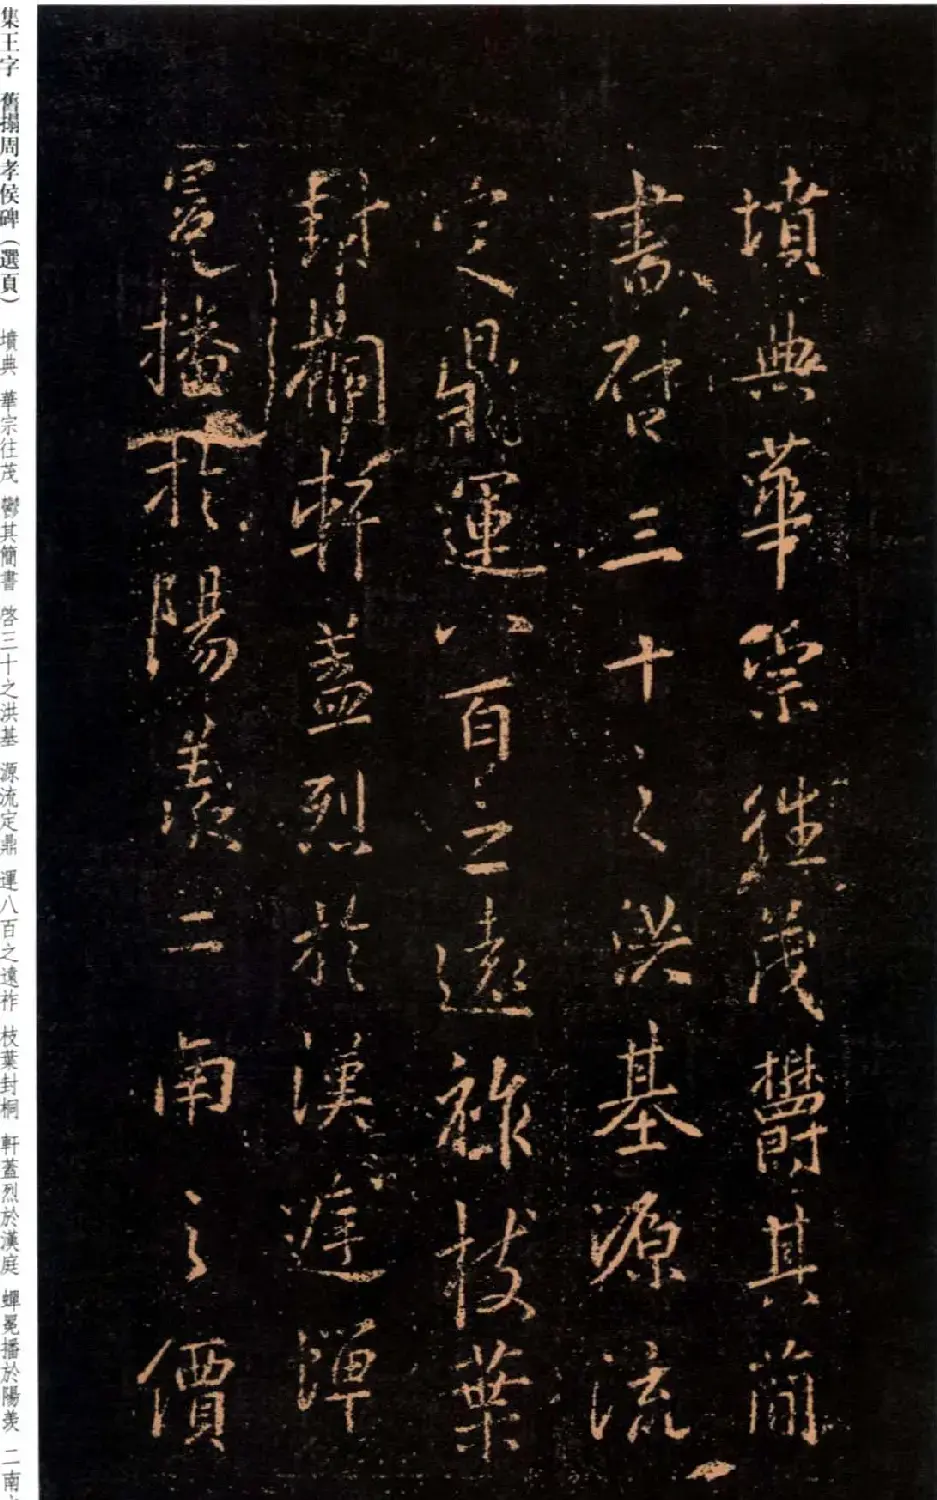 墳典華宗往茂鬱其簡
書啓三十之洪基源流
定鼎運八百之遠祚枝葉
封桐軒蓋烈於漢庭蟬
冕播於陽羨二南之價
集王字 舊搨周孝侯碑（選頁） 墳典 華宗往茂 鬱其簡書 啓三十之洪基 源流定鼎 運八百之遠祚 枝葉封桐 軒蓋烈於漢庭 蟬冕播於陽羨 二南